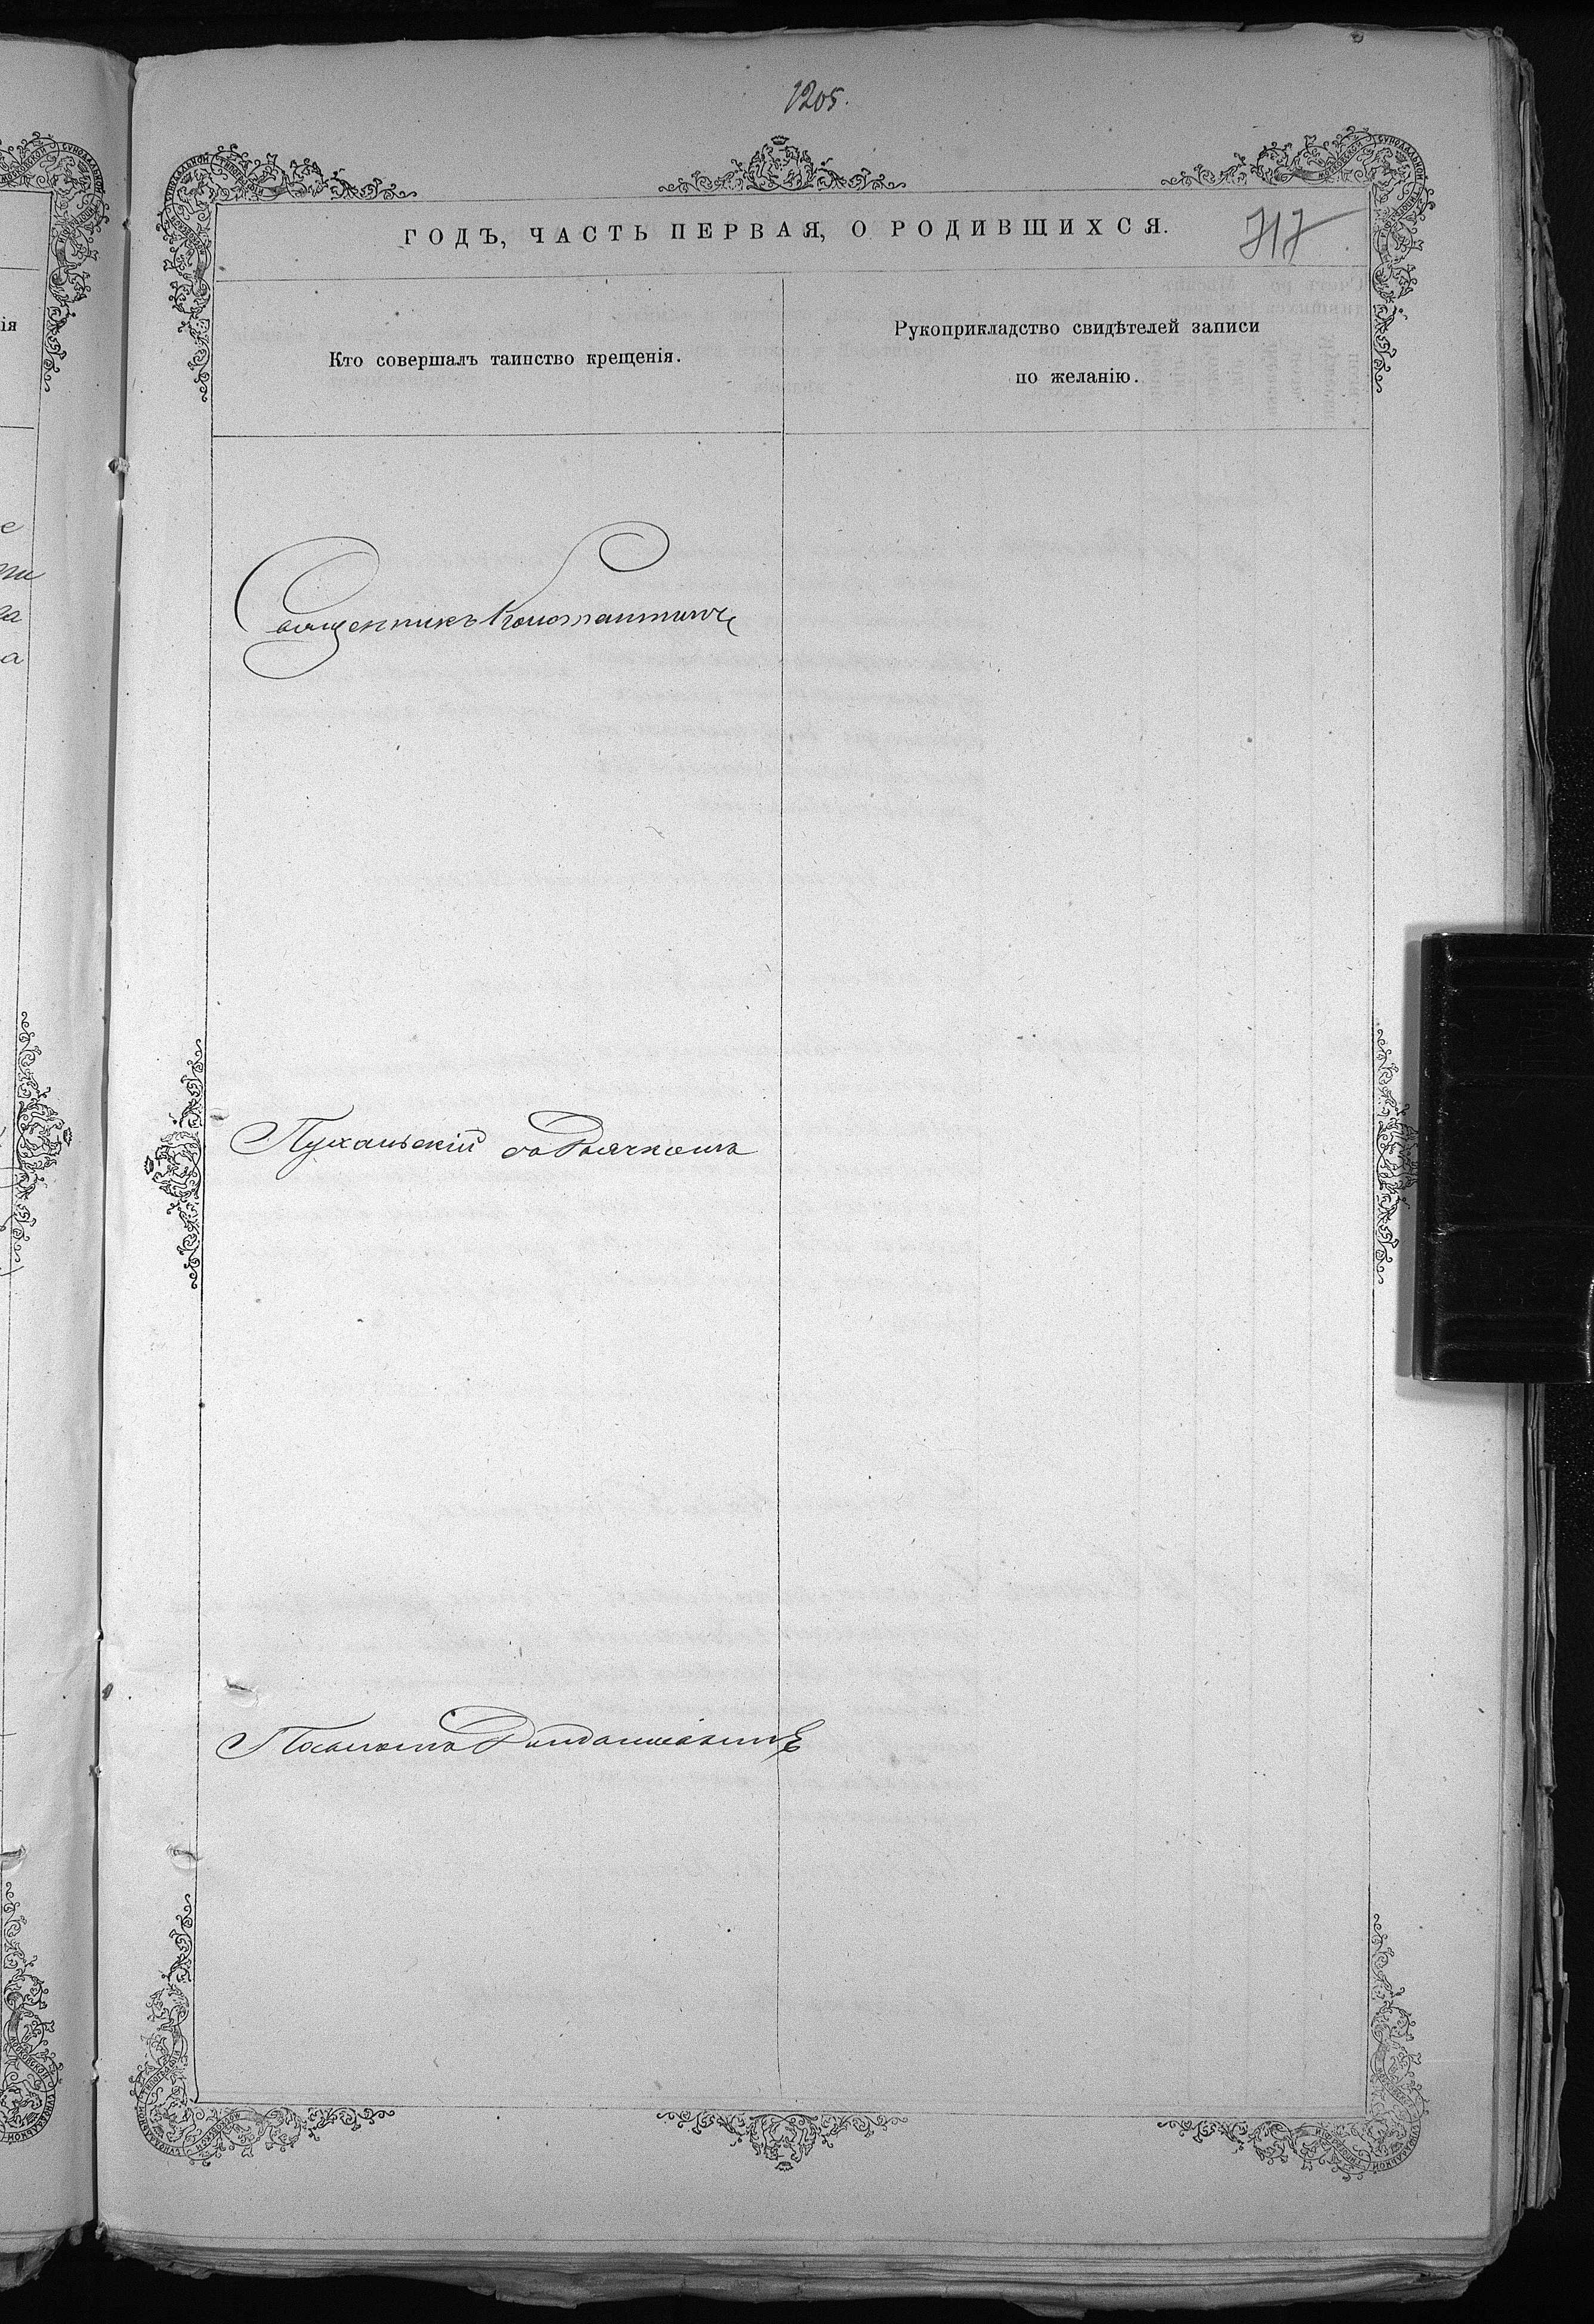 1205.
ГОДЪ, ЧАСТЬ ПЕРВАЯ, О РОДИВШИХСЯ.
717
Кто совершалъ таинство крещенія.
Рукоприкладство свидѣтелей записи
по желанію.
Священникъ Константинъ
Пухальскій съ Дьячкомъ